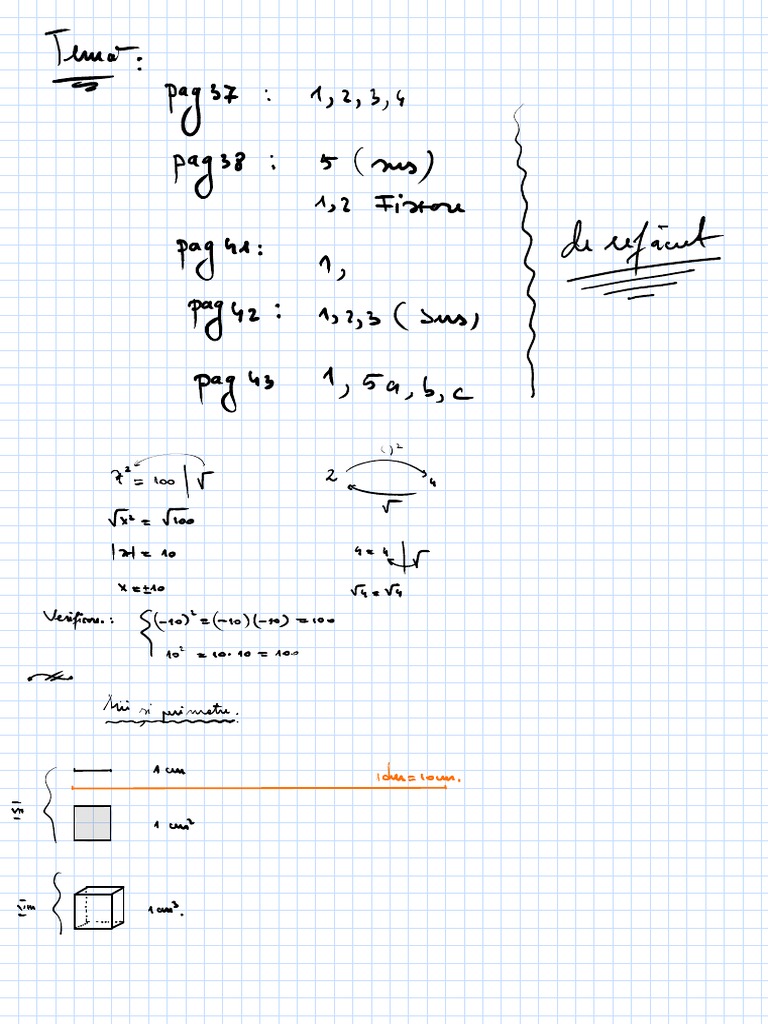 Temă:
pag 37 : 1, 2, 3, 4
pag 38 : 5 (sus)
1, 2 Fixare
pag 41: 1,
pag 42 : 1, 2, 3 (sus)
pag 43 1, 5a, b, c
de refăcut
x² = 100 | √
√x² = √100
|x| = 10
x = ±10
( )²
2 4
√
4 = 4 | √
√4 = √4
(-10)² = (-10)(-10) = 100
10² = 10 · 10 = 100
Arii și perimetre.
1 cm
1dm = 10cm.
1 cm²
1 cm³.